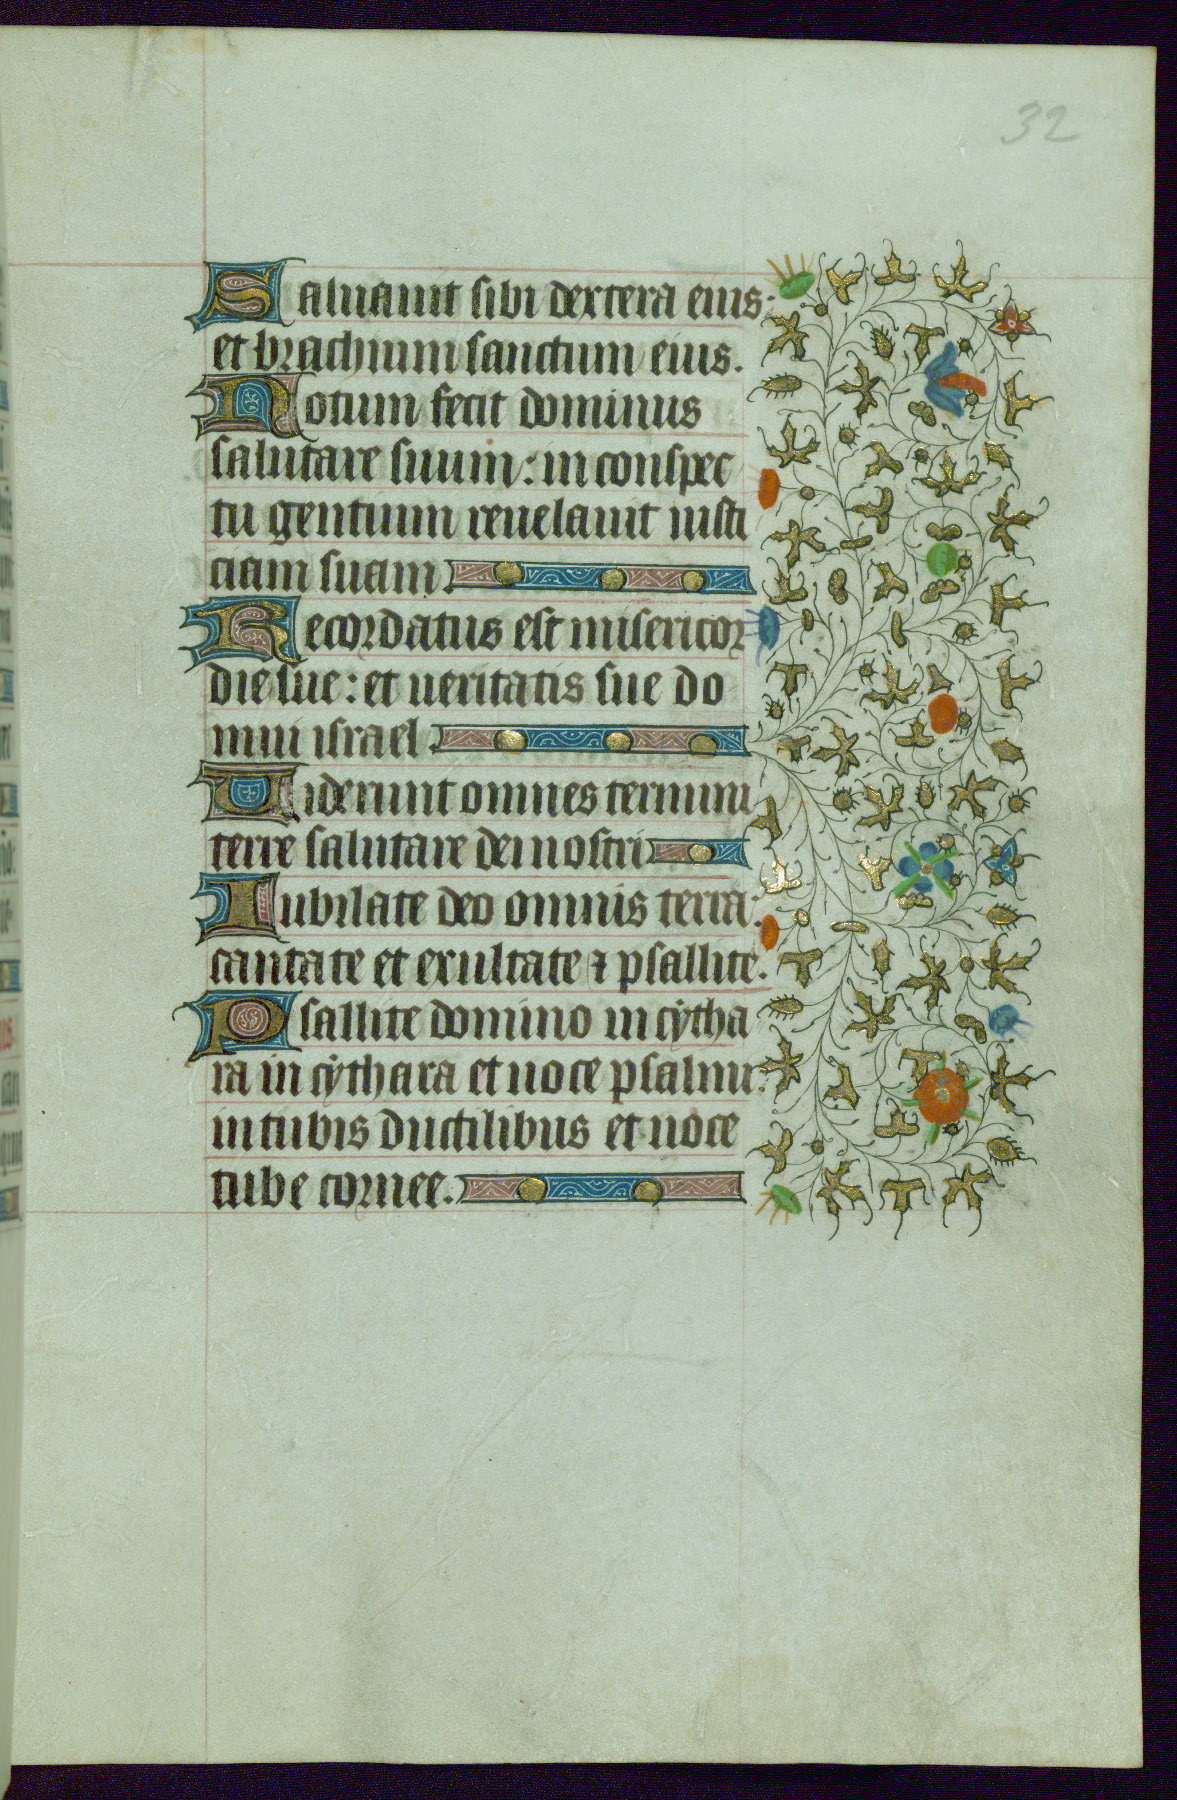 32
Saluauit sibi dextera eius:
et brachium sanctum eius.
Notum fecit dominus
salutare suum: in conspec
tu gentium reuelauit iusti
ciam suam
Recordatus est misericor
die sue: et ueritatis sue do
mui israel.
Uiderunt omnes termini
terre salutare dei nostri
Iubilate deo omnis terra:
cantate et exultate ⁊ psallite.
Psallite domino in cẏtha
ra in cẏthara et uoce psalmi:
in tubis ductilibus et uoce
tube cornee.